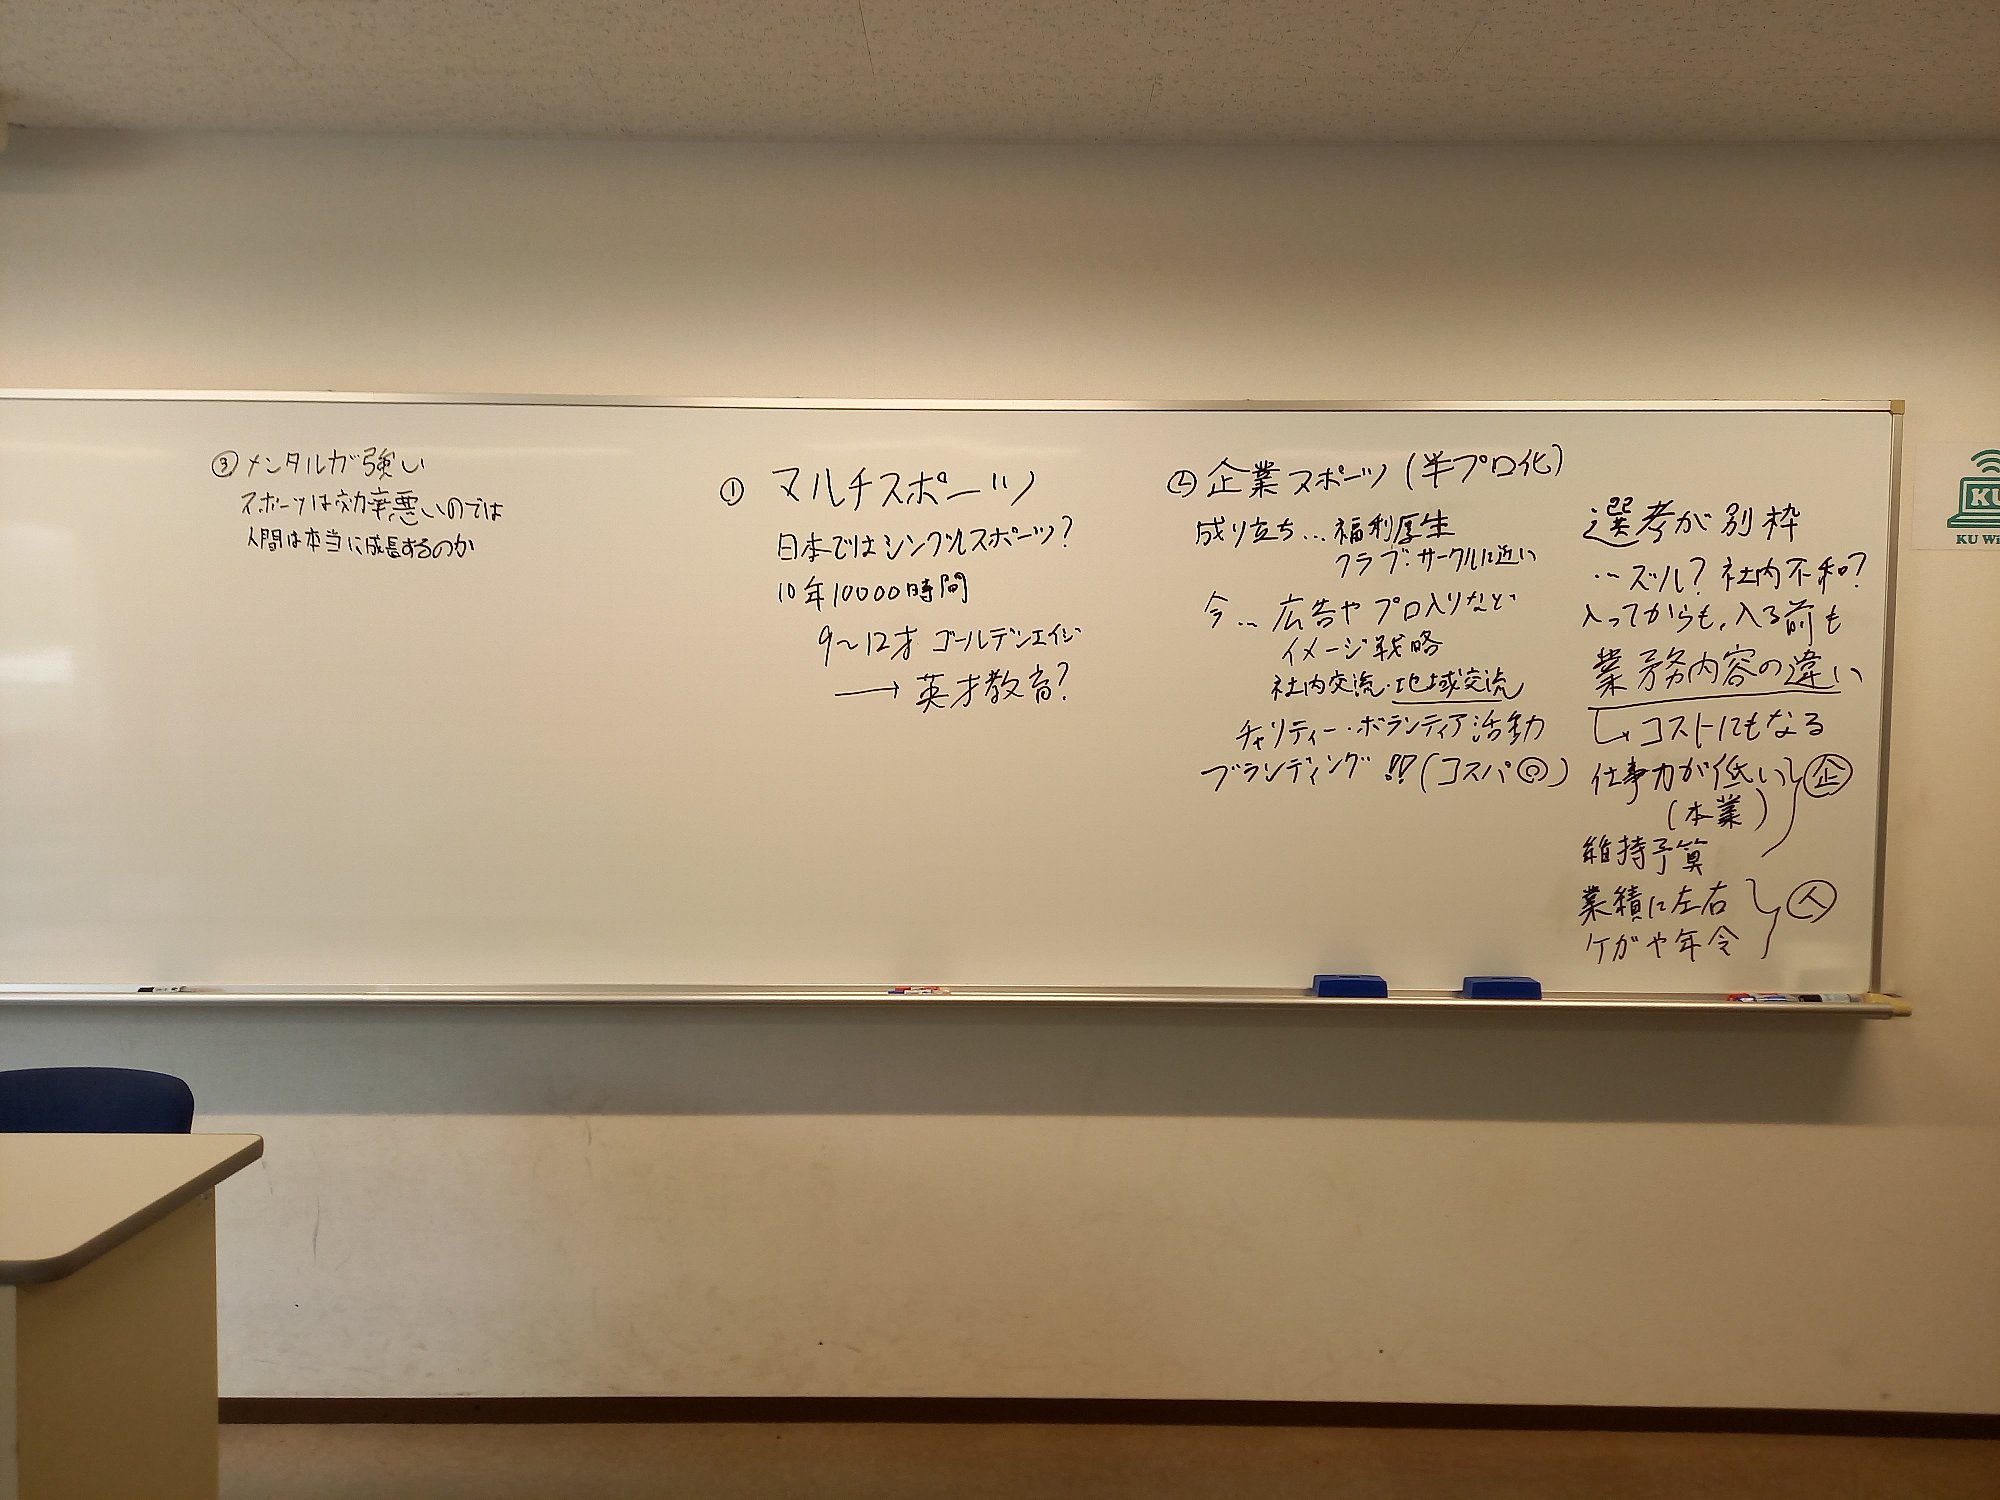 ③メンタルが強い
スポーツは効率悪いのでは
人間は本当に成長するのか
① マルチスポーツ
日本ではシングルスポーツ?
10年10000時間
9〜12才 ゴールデンエイジ
→ 英才教育?
② 企業スポーツ (半プロ化)
成り立ち…福利厚生
クラブ・サークルに近い
今… 広告や プロ入りなど
イメージ戦略
社内交流・地域交流
チャリティー・ボランティア活動
ブランディング!!(コスパ◎)
選考が別枠
…ズル? 社内不和?
入ってからも,入る前も
業務内容の違い
↳コストにもなる
仕事力が低い 企
(本業)
維持予算
業績に左右 人
ケガや年令
KU
KU Wi